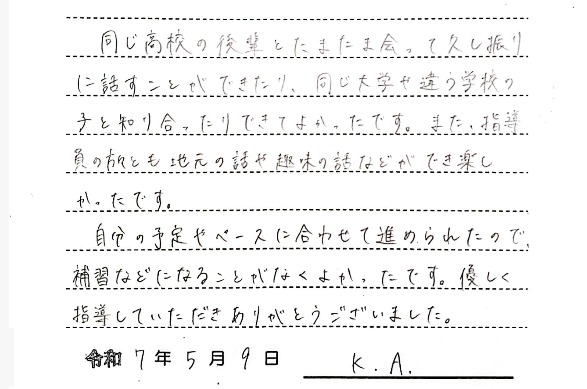 同じ高校の後輩とたまたま会って久し振り
に話すことができたり、同じ大学や違う学校の
子と知り合ったりできてよかったです。また、指導
員の方とも地元の話や趣味の話などができ楽し
かったです。
自分の予定やペースに合わせて進められたので、
補習などになることがなくよかったです。優しく
指導していただきありがとうございました。
令和 7 年 5 月 9 日 K. A.